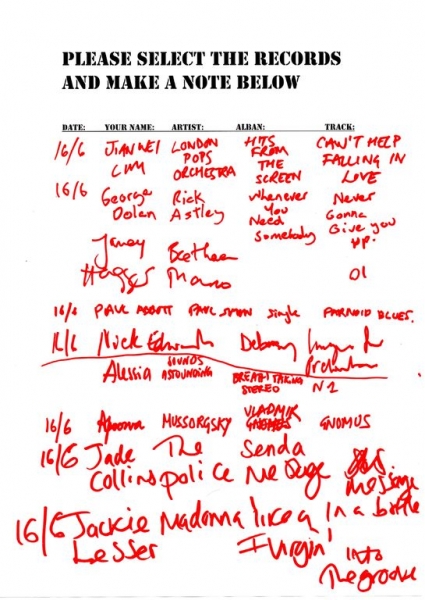 PLEASE SELECT THE RECORDS
AND MAKE A NOTE BELOW
DATE: YOUR NAME: ARTIST: ALBAN: TRACK:
16/6 JIANWEI LONDON HITS CAN'T HELP
LIM POPS FROM FALLING IN
ORCHESTRA THE LOVE
SCREEN
16/6 George Rick Whenever Never
Dolan Astley You Gonna
Need Give you
Somebody up.
Janey
Hagger 01
16/6 PAUL ABBOTT PAUL SIMON Single PARANOID BLUES.
16/6 Nick Edwards
Alessia SOUNDS BREATHTAKING N 1
ASTOUNDING STEREO
16/6 MUSSORGSKY VLADMIR GNOMUS
GNOMES
16/6 Jade The Senda
Collins police message
16/6 Jackie Madonna like a In a bottle
Lesser Virgin' Into
The groove